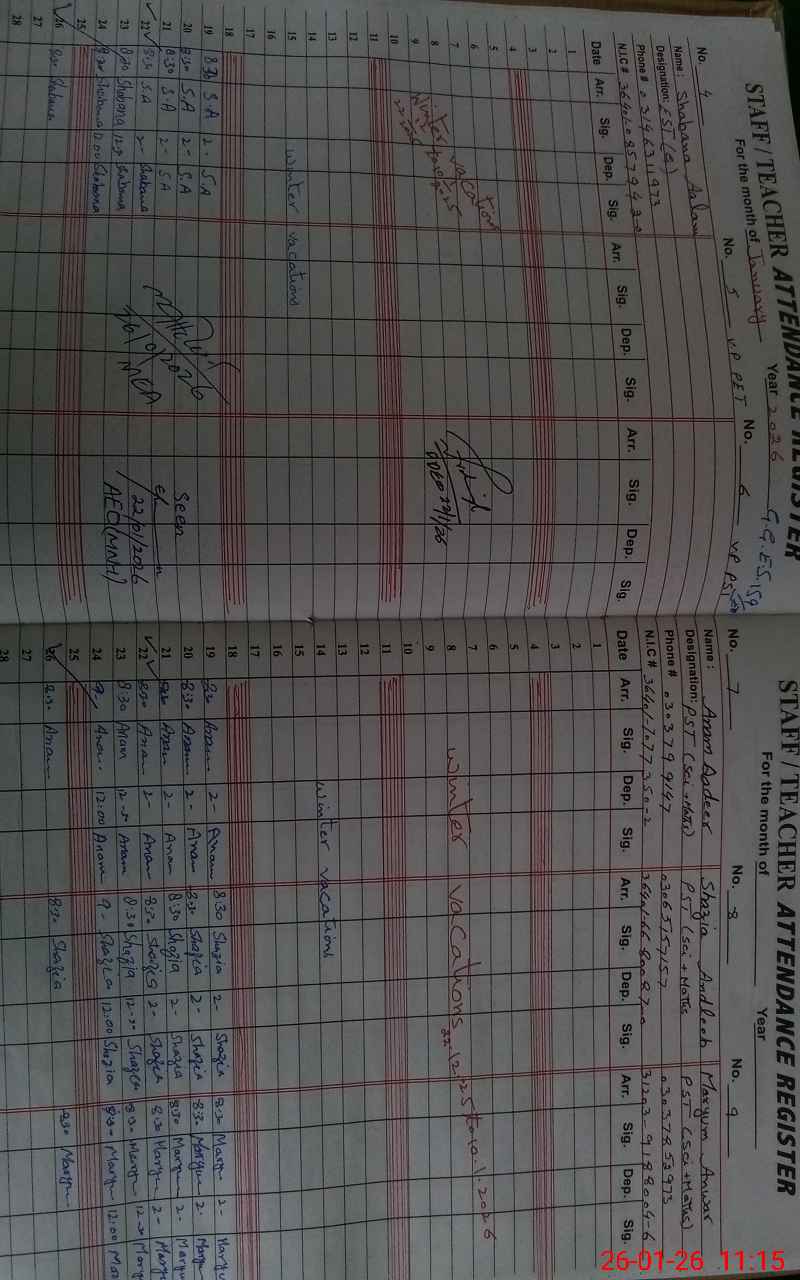 STAFF / TEACHER ATTENDANCE REGISTER
For the month of January Year 2026 G.G.E.S. 159
No. 4
No. 5 V.P PET
No. 6 V.P PST
Name: Shabana Aslam
Designation: EST (
Phone # 03146311973
N.I.C #
Date Arr. Sig. Dep. Sig. Arr. Sig. Dep. Sig. Arr. Sig. Dep. Sig.
1
2
3
4
5
6
7
8
9
10
11
12
13
14
15
16
17
18
winter vacation
winter vacations
22/1/26
19 8:30 S.A 2- S.A
20 8:30 S.A 2- S.A
21 8:30 S.A 2- S.A
22 8:30 S.A 2- Shabana
23 8:30 Shabana 12-30 Shabana
24 8:30 Shabana 12:00 Shabana
25
26 8:30 Shabana
27
28
Seen
22/01/2026
AEO (MNH)
STAFF / TEACHER ATTENDANCE REGISTER
For the month of Year
No. 7
No. 8
No. 9
Name: Anam Aadeer Shazia Andleeb Maryum Anwar
Designation: PST (Sci + Maths) PST (Sci + Maths) PST (Sci + Maths)
Phone # 0303799 03065157157 03037853973
N.I.C # 36401-7077350-2 31203-9188004-6
Date Arr. Sig. Dep. Sig. Arr. Sig. Dep. Sig. Arr. Sig. Dep. Sig.
1
2
3
4
5
6
7
8
9
10
11
12
13
14
15
16
17
18
winter vacations 22.12.25 to 10.1.2026
winter vacations
19 8:30 Anam 2- Anam 8:30 Shazia 2- Shazia 8:30 Maryum 2- Maryum
20 8:30 Anam 2- Anam 8:30 Shazia 2- Shazia 8:30 Maryum 2- Maryum
21 8:30 Anam 2- Anam 8:30 Shazia 2- Shazia 8:30 Maryum 2- Maryum
22 8:30 Anam 2- Anam 8:30 Shazia 2- Shazia 8:30 Maryum 2- Maryum
23 8:30 Anam 12-30 Anam 8:30 Shazia 12-30 Shazia 8:30 Maryum 12-30 Maryum
24 9- Anam 12:00 Anam 9- Shazia 12:00 Shazia 8:30 Maryum 12:00
25
26 8:30 Anam 8:30 Shazia 8:30 Maryum
27
28
26-01-26 11:15